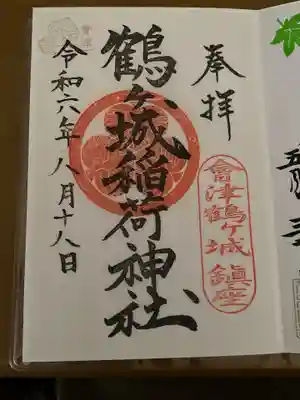 奉拝
會津鶴ヶ城鎮座
鶴ヶ城稲荷神社
令和六年八月十八日